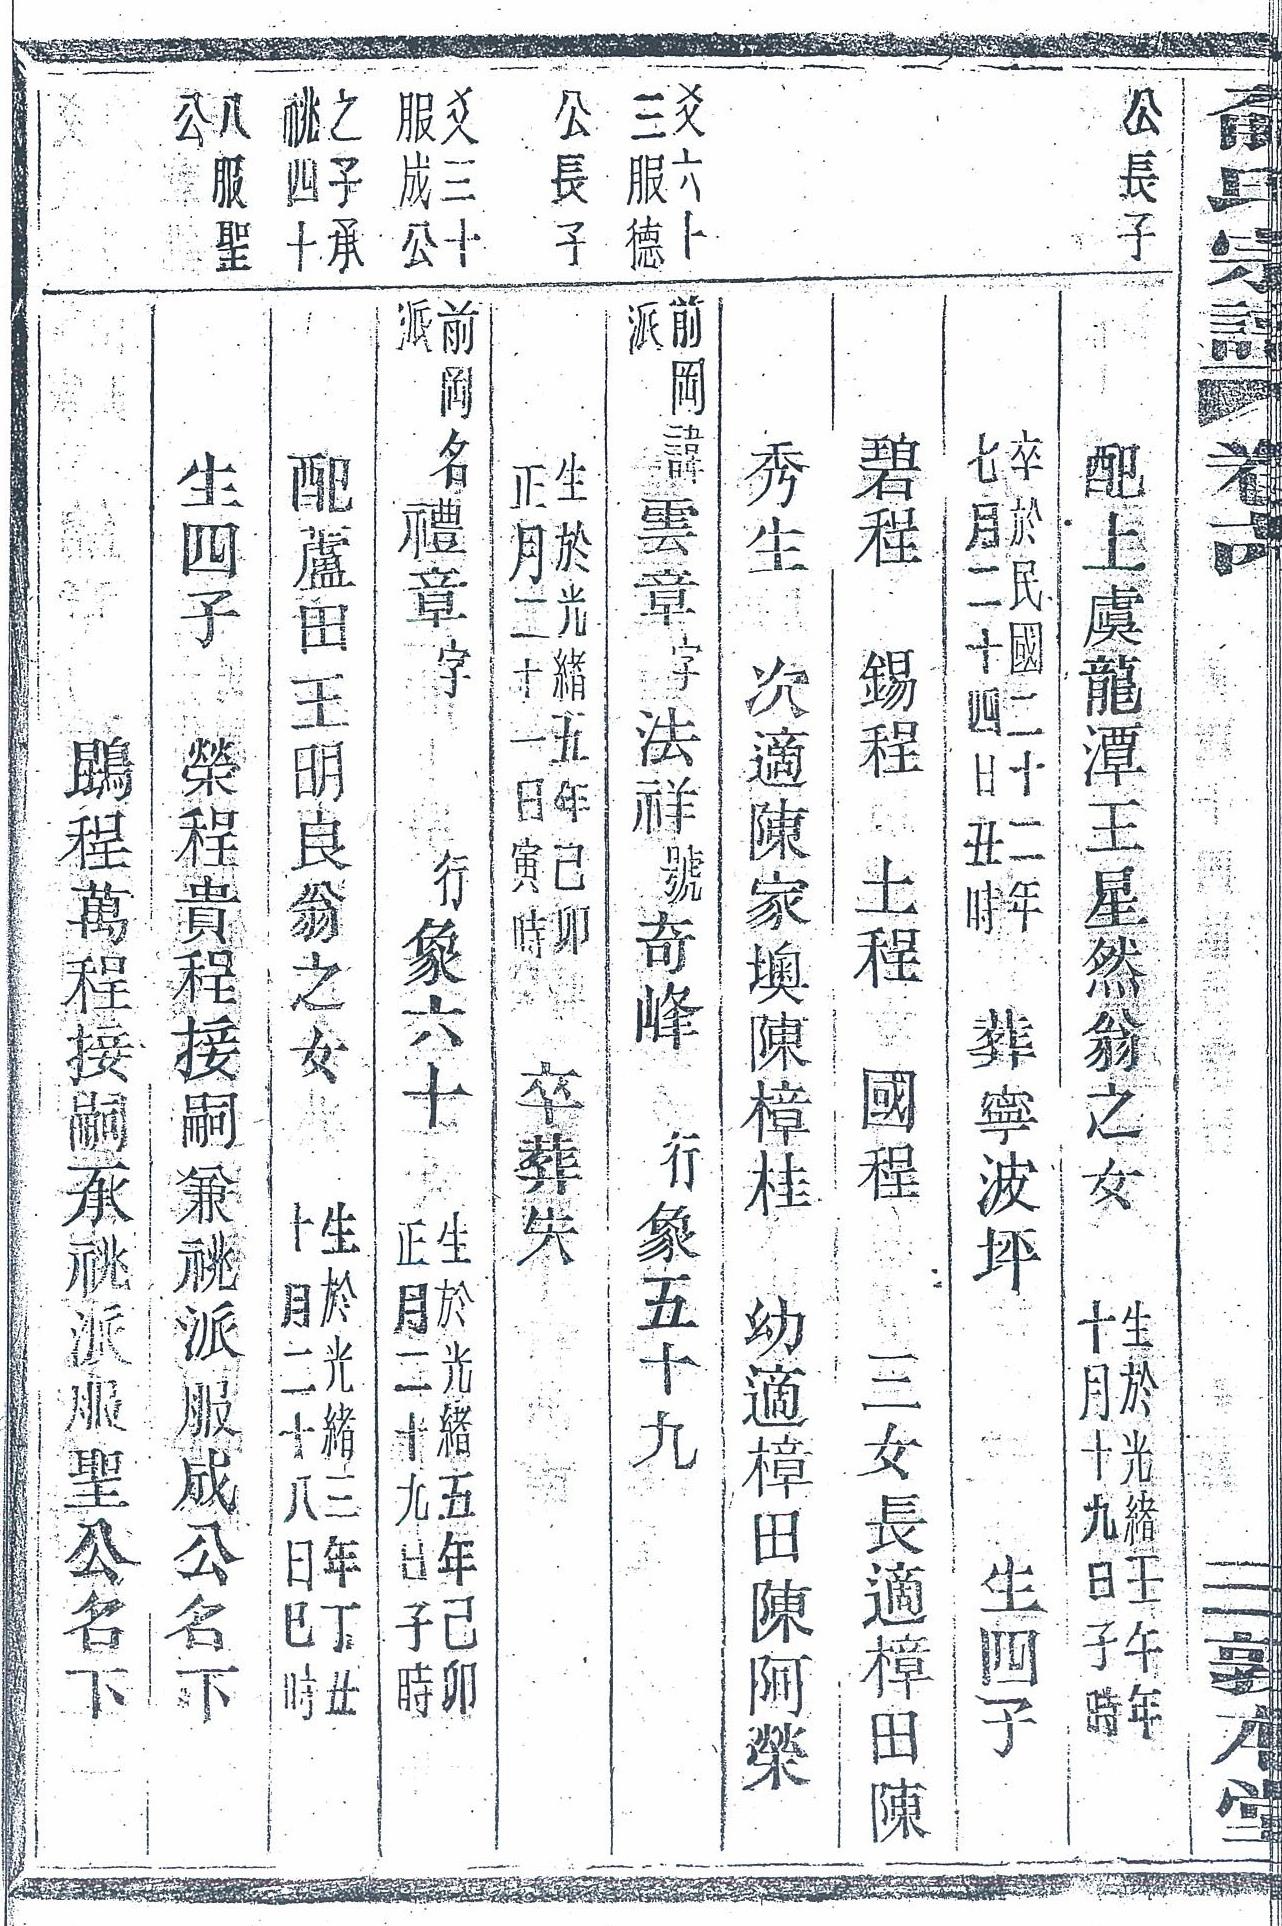 俞氏宗譜 卷六 三 敦本堂
公長子
配上虞龍潭王星然翁之女 生於光緒壬午年
十月十九日子時
卒於民國二十二年
七月二十四日丑時 葬寧波坪 生四子
碧程 錫程 土程 國程 三女長適樟田陳
秀生 次適陳家墺陳樟桂 幼適樟田陳阿榮
爻六十
三服德
前岡
派 諱雲章字法祥號奇峰 行象五十九
公長子
生於光緒五年己卯
正月二十一日寅時 卒葬失
爻三十
服成公
前岡
派 名禮章字 行象六十 生於光緒五年己卯
正月二十九日子時
之子承
祧四十
配蘆田王明良翁之女 生於光緒三年丁丑
十月二十八日巳時
八服聖
公
生四子 榮程貴程接嗣兼祧派服成公名下
鵾程萬程接嗣承祧派服聖公名下